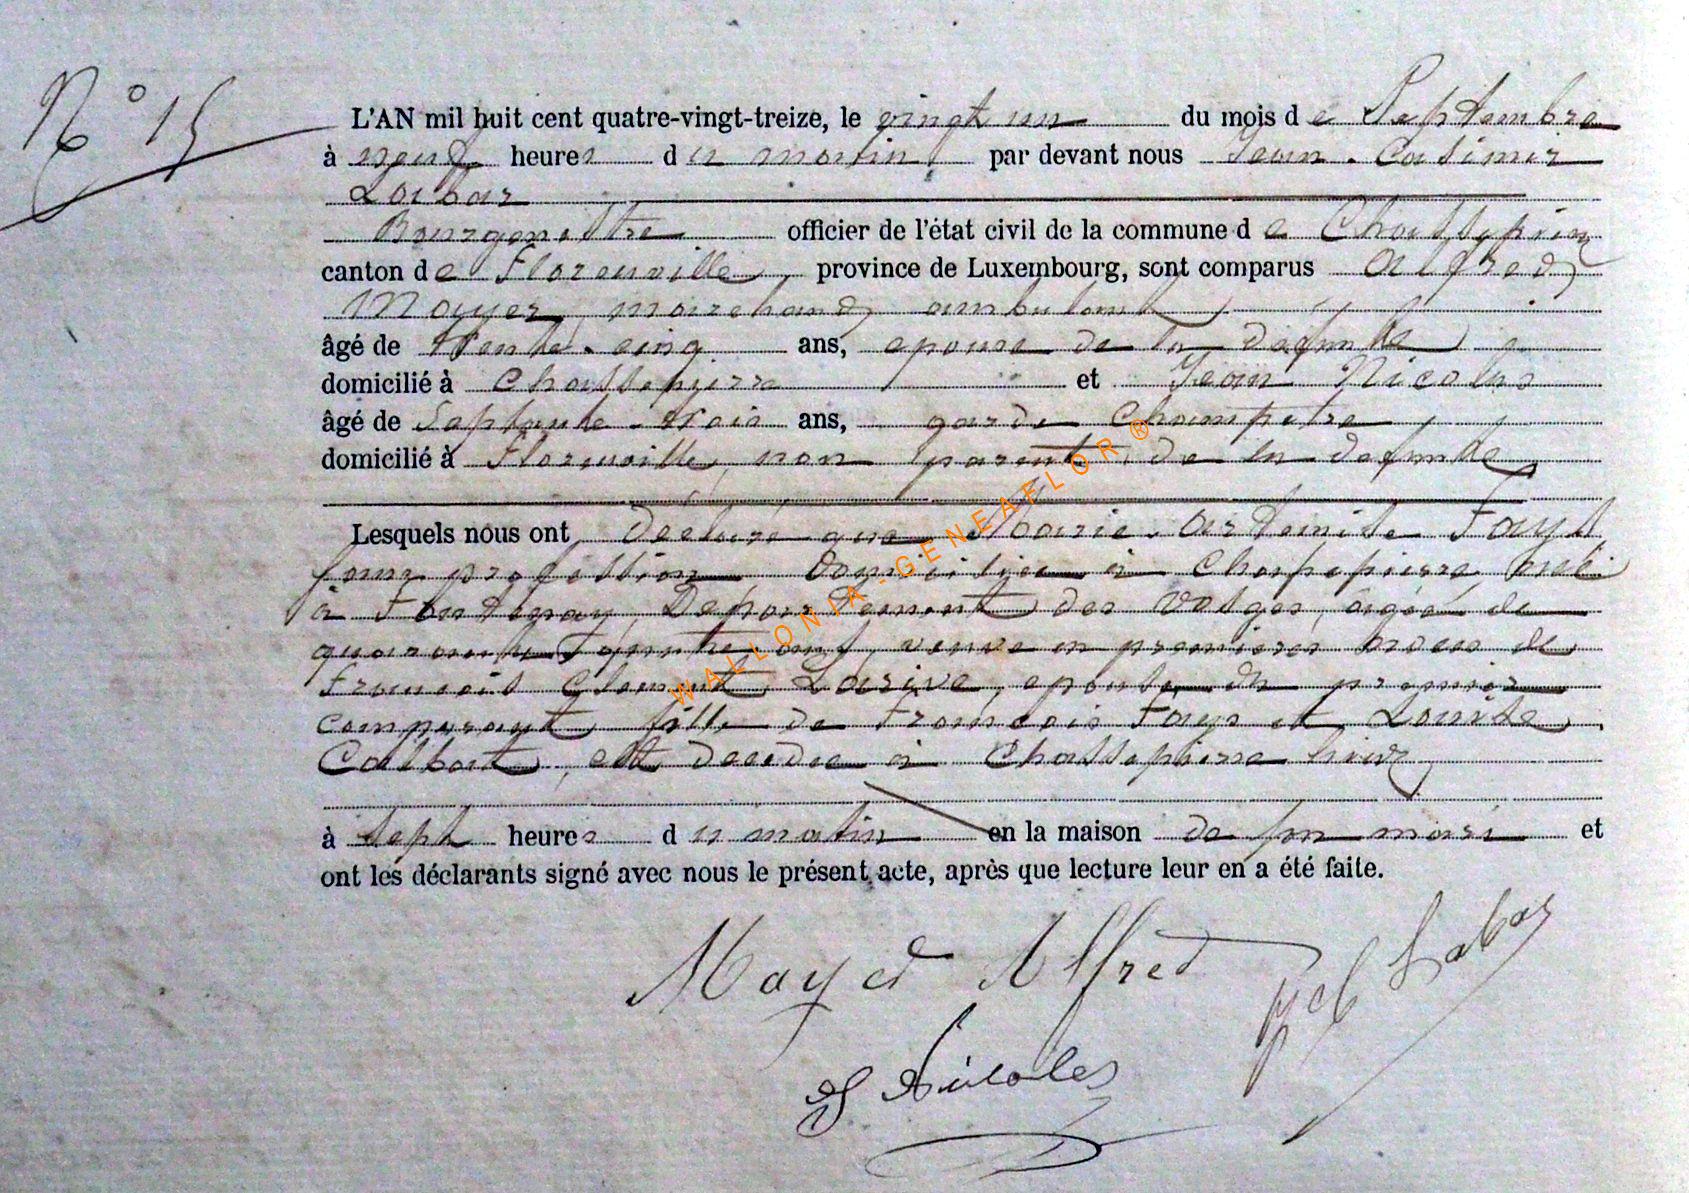 N° 15
L'AN mil huit cent quatre-vingt-treize, le vingt un du mois de Septembre
à neuf heures du matin, par devant nous Jean-Casimir
Labar
Bourgmestre officier de l'état civil de la commune de Chassepierre
canton de Florenville, province de Luxembourg, sont comparus Alfred
Mayer, marchand ambulant,
âgé de trente-cinq ans, epoux de la defunte
domicilié à Chassepierre et Jean Nicolas
âgé de Septante-trois ans, garde Champetre,
domicilié à Florenville, non parent de la defunte
Lesquels nous ont declaré que Marie-Artemise Fays
sans profession domiciliée à Chassepierre née
à Fontenay, Departement des Vosges, agée de
quarante ans, veuve en premieres noces de
Francois Clement Larive, epouse du premier
comparant, fille de Francois Fays et Louise
Calbat, est decedée à Chassepierre hier
à sept heures du matin en la maison de son mari et
ont les déclarants signé avec nous le présent acte, après que lecture leur en a été faite.
Mayer Alfred
Labar
Nicolas
WALLONIA-GENEAFLOR ®